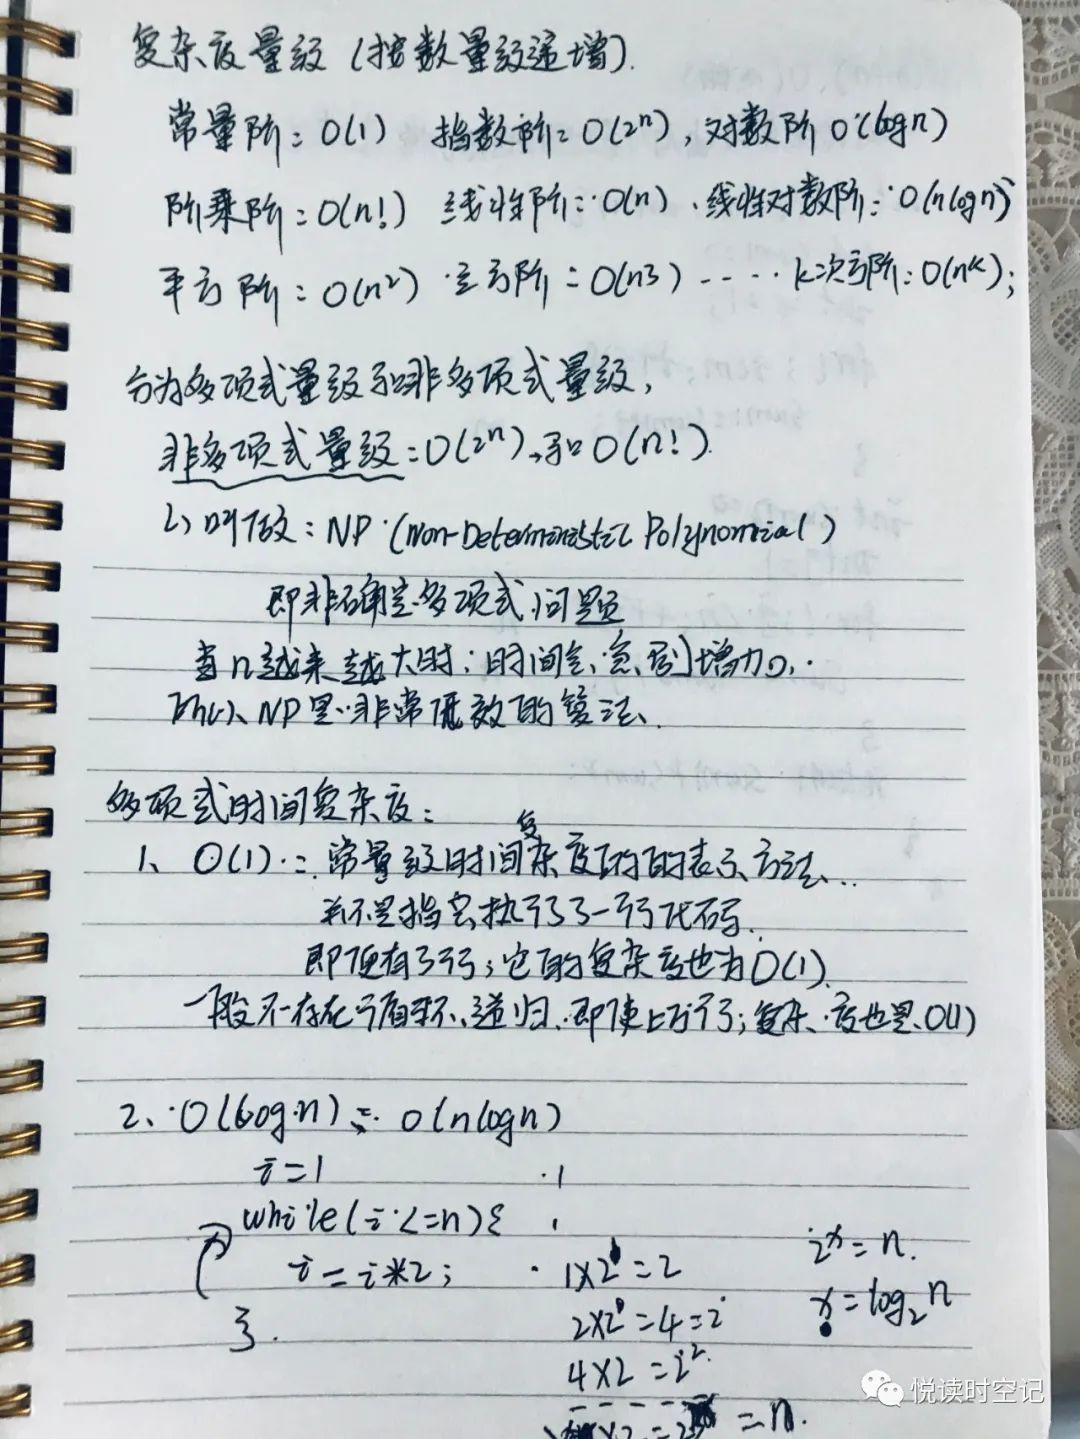 复杂度量级（按数量级递增）.
常量阶：O(1) 指数阶：O(2ⁿ)，对数阶 O(logn)
阶乘阶：O(n!) 线性阶：O(n)、线性对数阶：O(nlogn)
平方阶：O(n²) 立方阶：O(n³) ····· k次方阶：O(nᵏ)；
分为多项式量级和非多项式量级，
非多项式量级：O(2ⁿ)、和 O(n!).
叫做：NP（Non-Deterministic Polynomial）
即非确定多项式问题
当n越来越大时；时间会急剧增加，
所以、NP是非常低效的算法、
多项式时间复杂度：
1、O(1)：常量级时间复杂度的表示方法、
并不是指只执行了一行代码.
即便有3行；它的复杂度也为O(1).
一般不存在循环、递归、即使上万行；复杂度也是O(1)
2、O(logn)、O(nlogn)
i=1 1
while(i<=n){
i=i*2; 1×2=2 2ˣ=n.
}. 2×2=4 x=log₂n
4×2
=n.
悦读时空记